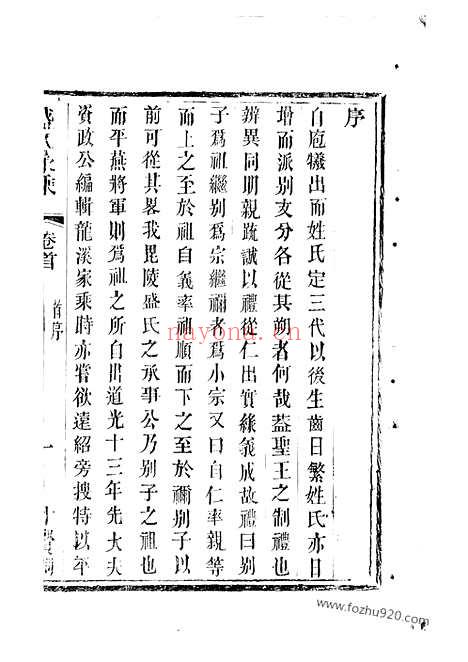 序
自庖犧出而姓氏定三代以後生齒日繁姓氏亦日
增而派別支分各從其朔者何哉蓋聖王之制禮也
辨異同明親疏誠以禮從仁出實緣義成故禮曰別
子爲祖繼別爲宗繼禰者爲小宗又曰自仁率親等
而上之至於祖自義率祖順而下之至於禰別子以
前可從其畧我毘陵盛氏之承事公乃別子之祖也
而平燕將軍則爲祖之所自出道光十三年先大夫
資政公編輯龍溪家乘時亦嘗欲遠紹旁搜特以年
盛氏家乘
卷首
首序
一
nayona.cn
www.fozhu920.com